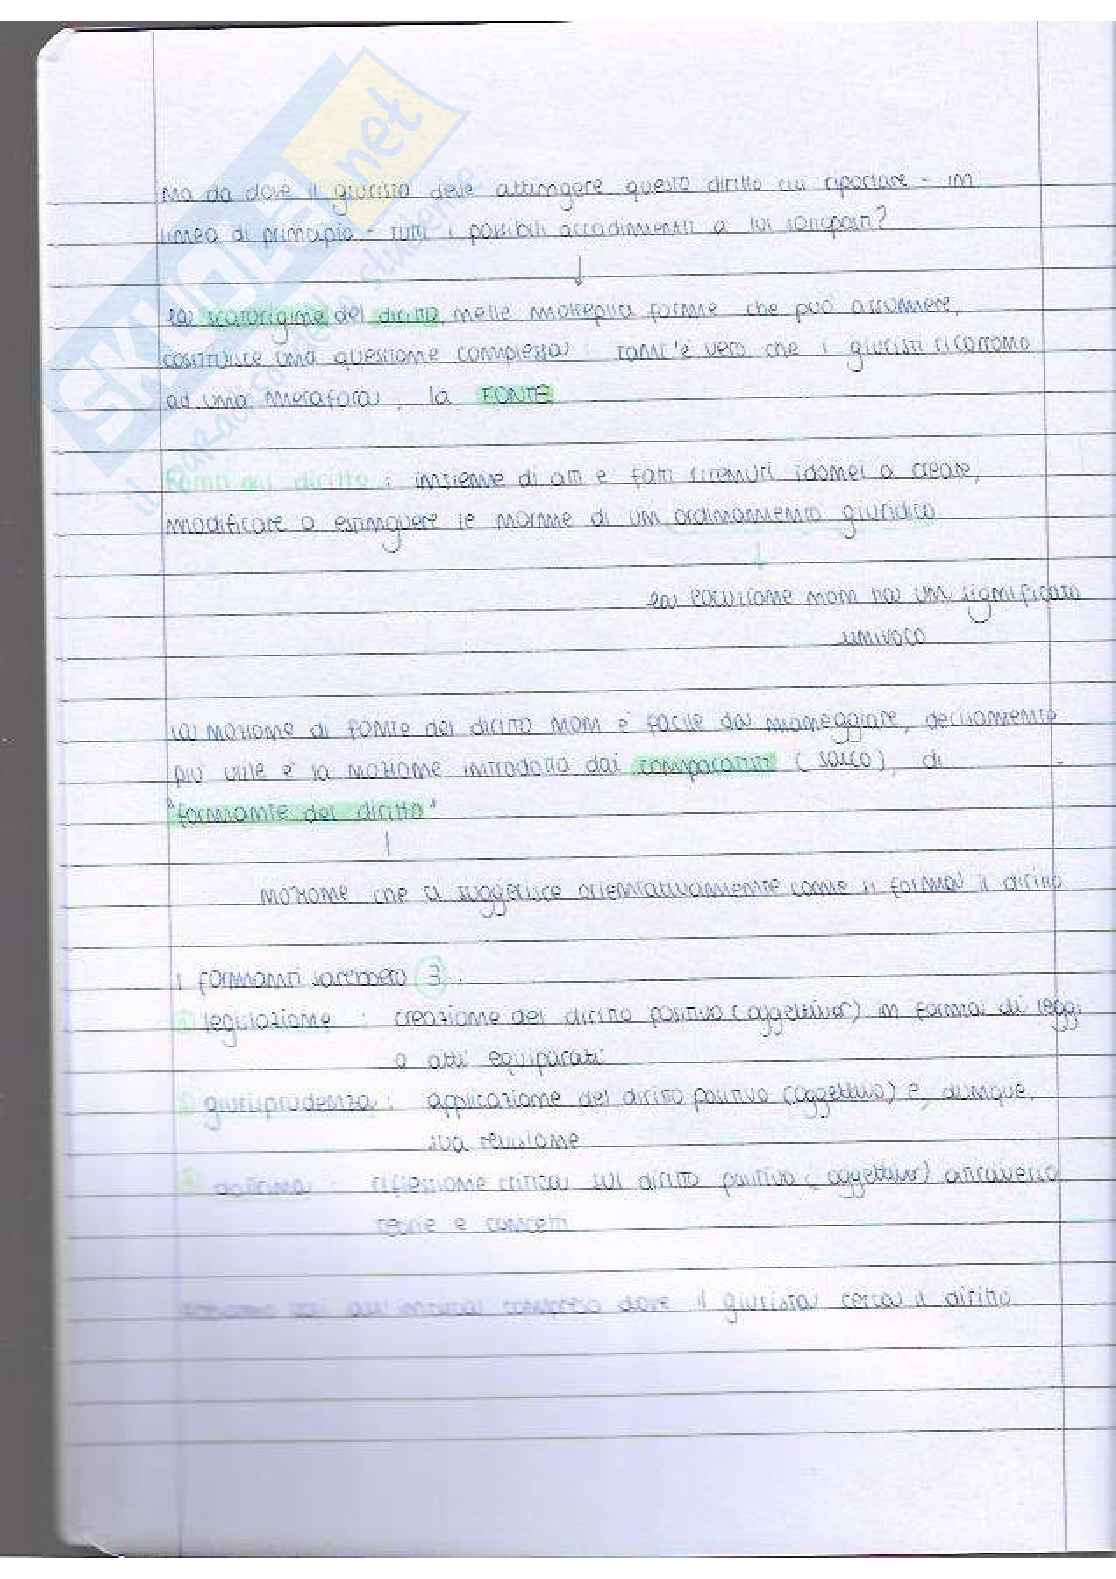 SKUOLA.net
Ma da dove il giurista deve attingere questo diritto cui riportare - in
linea di principio - tutti i possibili accadimenti a lui sottoposti?
↓
la scaturigine del diritto, nelle molteplici forme che può assumere,
costituisce una questione complessa: tant'è vero che i giuristi ricorrono
ad una metafora, la FONTE
Fonti del diritto: insieme di atti e fatti ritenuti idonei a creare,
modificare o estinguere le norme di un ordinamento giuridico
↓
la locuzione non ha un significato
univoco
la nozione di fonte del diritto non è facile da maneggiare, decisamente
più utile è la nozione introdotta dai comparatisti (Sacco), di
"formante del diritto"
nozione che ci suggerisce orientativamente come si forma il diritto
i formanti sarebbero 3:
legislazione: creazione del diritto positivo (oggettivo) in forma di leggi
o atti equiparati
giurisprudenza: applicazione del diritto positivo (oggettivo) e, dunque,
sua revisione
dottrina: riflessione critica sul diritto positivo (oggettivo) attraverso
teorie e concetti
dove il giurista cerca il diritto